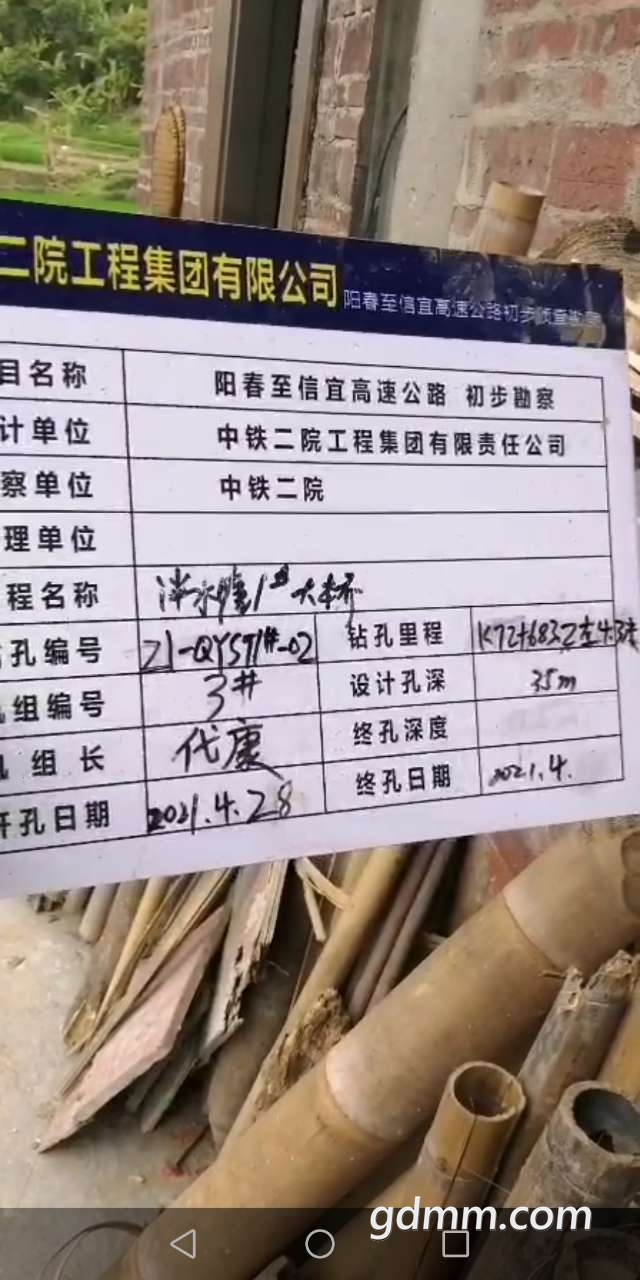 二院工程集团有限公司 阳春至信宜高速公路初步
目名称 阳春至信宜高速公路 初步勘察
计单位 中铁二院工程集团有限责任公司
察单位 中铁二院
理单位
程名称 1# 大桥
孔编号 Z1-QYST1#-02 钻孔里程 K72+683
组编号 3# 设计孔深 35m
组长 代康 终孔深度
开孔日期 2021.4.28 终孔日期 2021.4.
gdmm.com